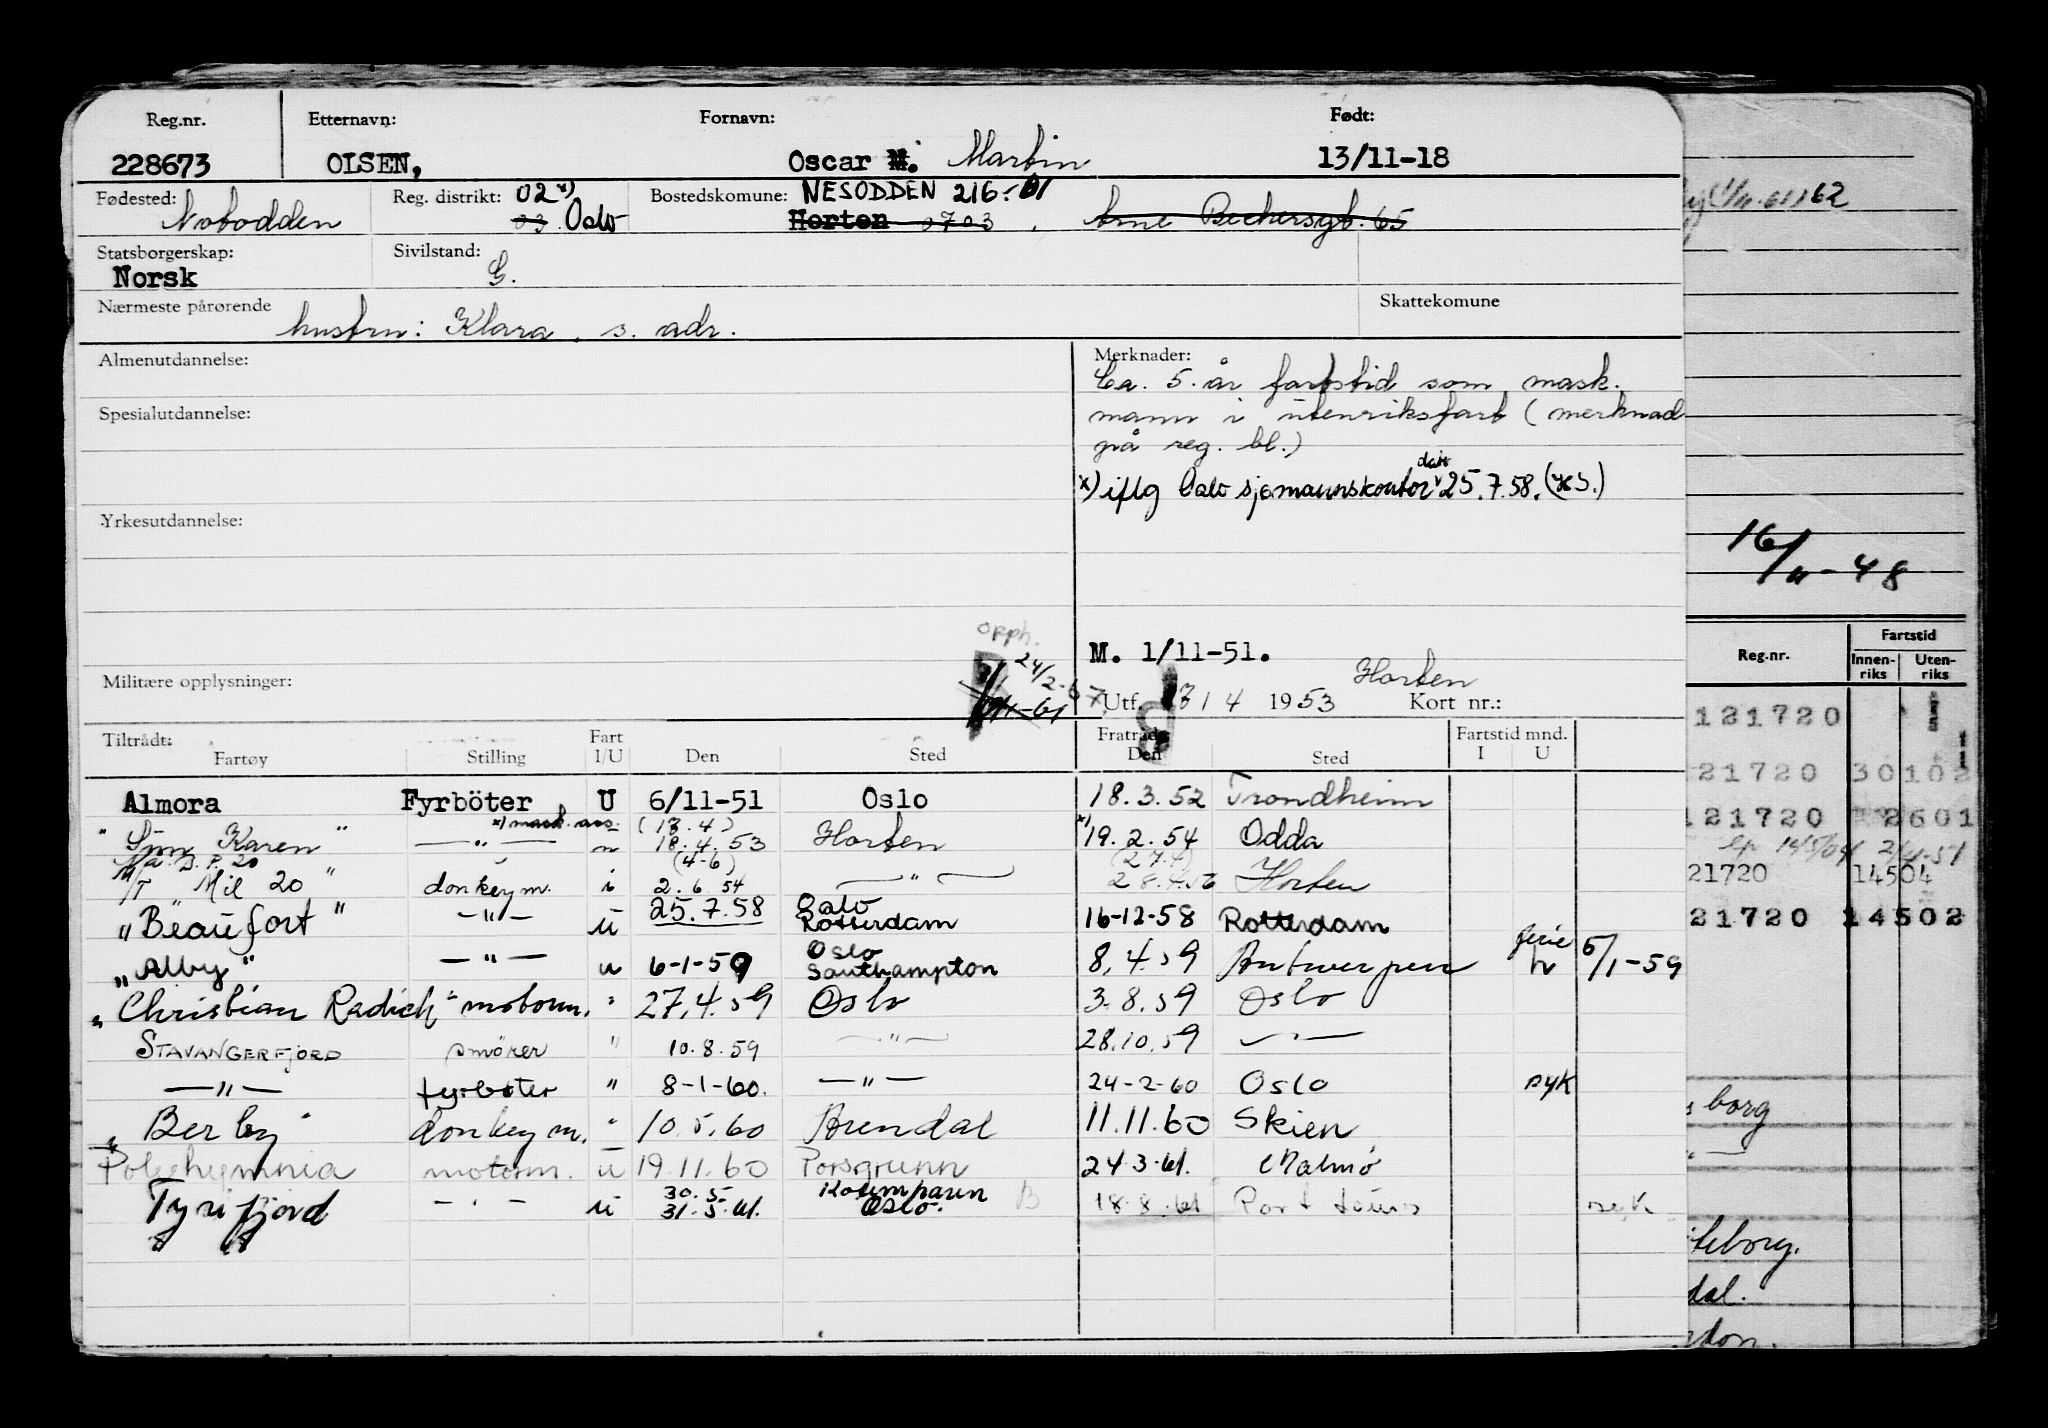 Reg.nr. Etternavn: Fornavn: Født:
228673 OLSEN, Oscar M. Martin 13/11-18
Fødested: Reg. distrikt: 02 x) Bostedskomune: NESODDEN 216-01
Notodden 03 Oslo Horten 0703 Arne Bechersgt. 65
Statsborgerskap: Sivilstand:
Norsk G.
Nærmeste pårørende Skattekomune
hustru: Klara, s. adr.
Almenutdannelse: Merknader:
Ca. 5 år fartstid som mask.
Spesialutdannelse: mann i utenriksfart (merknad
på reg. bl.)
dat.
x) iflg Oslo sjømannskontor 25.7.58.
Yrkesutdannelse:
16/11-48
opph.
24/2-67
M. 1/11-51.
Horten
Militære opplysninger: Utf. 17/4 1953 Kort nr.:
Tiltrådt: Fart Fratrådt: Fartstid mnd.
Fartøy Stilling I/U Den Sted Den Sted I U
Almora Fyrböter U 6/11-51 Oslo 18.3.52 Trondheim
x) mask. ass. (17.4)
"Sijm Karen" —"— u 18.4.53 Horten x) 19.2.54 Odda
(4-6) (27.4)
M/T "Mil 20" donkeym. i 2.6.54 —"— 28.4.56 Horten
Oslo
"Beaufort" —"— u 25.7.58 Rotterdam 16-12-58 Rotterdam
Oslo ferie
"Alby" —"— u 6-1-59 Southampton 8.4.59 Antwerpen 5/1-59
"Christian Radich" motorm. " 27.4.59 Oslo 3.8.59 Oslo
STAVANGERFJORD smører " 10.8.59 —"— 28.10.59 —"—
—"— fyrbøter " 8-1-60. —"— 24-2-60 Oslo syk
"Berby" donkeym. " 10.5.60 Arendal 11.11.60 Skien
Polyhymnia motorm. u 19.11.60 Porsgrunn 24.3.61. Malmö
30.5
Tyrifjord —"— u 31.5.61. Oslo. 18.8.61 Port syk
Reg.nr. Fartstid
Innenriks Utenriks
121720
21720 30102
121720 2601
21720 14504
21720 14502
borg
teborg.
dal.